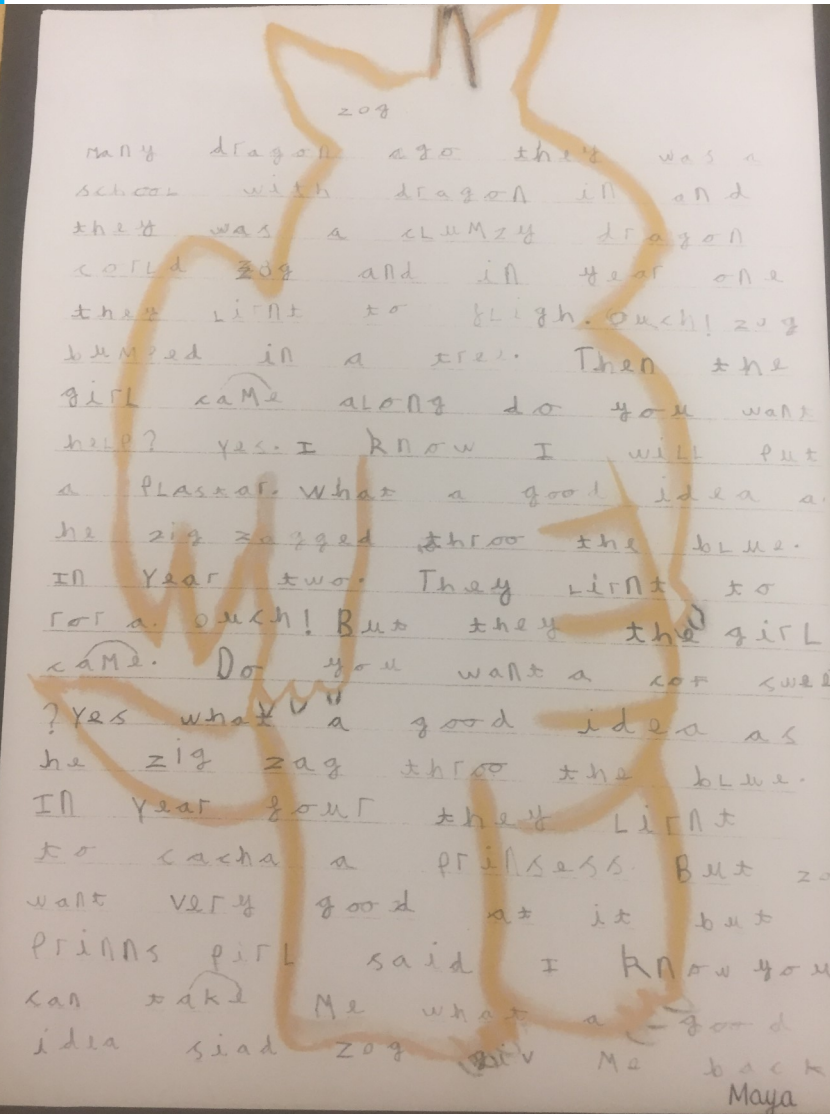 zog
Many dragon ago they was a
school with dragon in and
they was a clumzy dragon
corld zog and in year one
they lirnt to fligh. Ouch! zog
bumped in a tree. Then the
girl came along do you want
help? yes. I know I will put
a plastar. what a good idea a
he zig zagged throo the blue.
In Year two. They lirnt to
ror a. ouch! But they the girl
came. Do you want a cof swee
? Yes what a good idea as
he zig zag throo the blue.
In Year four they Lirnt
to cacha a prinsess. But zo
want very good at it but
Prinns pirl said I know you
can take Me what a good
idea siad zog Me back
Maya